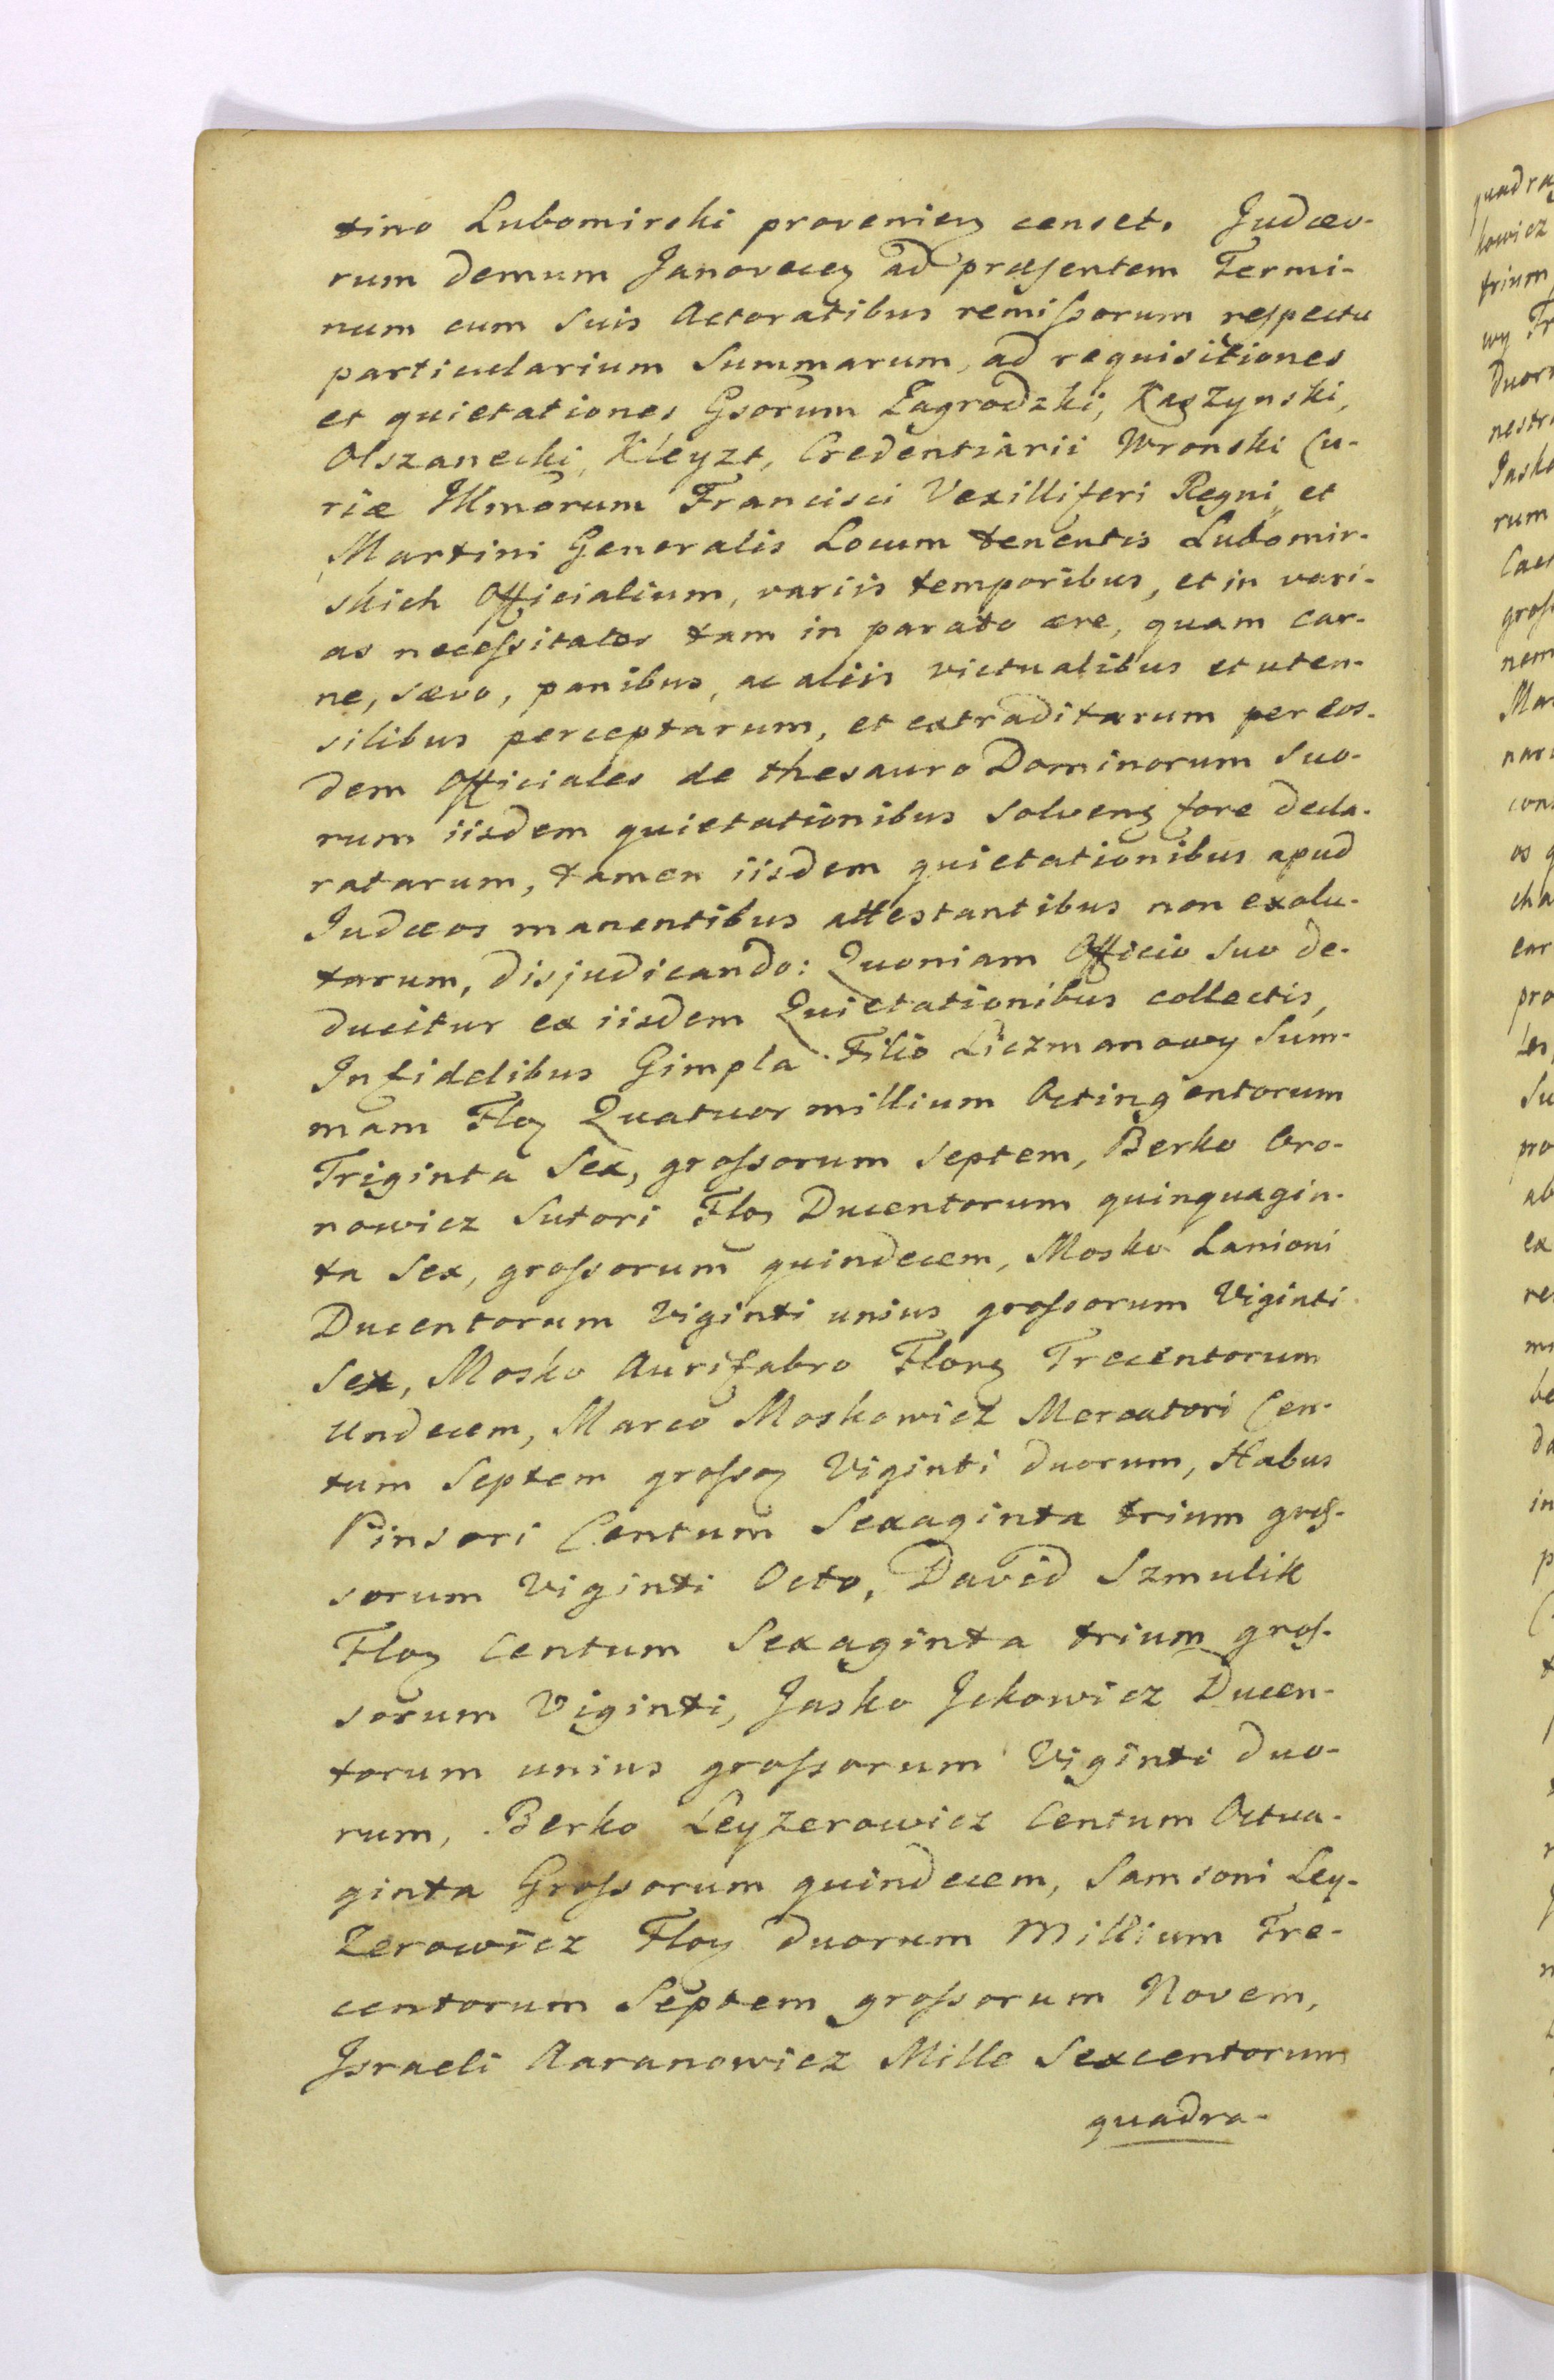 tino Lubomirski provenieꝝ censet. Judæo-
rum demum Janoveceꝝ ad præsentem Termi-
num cum suis Actoratibus remissorum respectu
particularium Summarum, ad requisitiones
et quietationes Gsorum Zagrodzki, Raszynski,
Olszanecki, Kleyzt, Credentiarii Wronski Cu-
riæ Illmorum Francisci Vexilliferi Regni, et
Martini Generalis Locum tenentis Lubomir-
skich Officialium, variis temporibus, et in vari-
as necessitates tam in parato ære, quam car-
ne, sævo, panibus, ac aliis victualibus et uten-
silibus perceptarum, et extraditarum per eos-
dem Officiales de thesauro Dominorum Suo-
rum iisdem quietationibus solvenꝝ fore decla-
ratarum, tamen iisdem quietationibus apud
Judæos manentibus attestantibus non exolu-
tarum, disjudicando: Quoniam Officio suo de-
ducitur ex iisdem Quietationibus collectis,
Infidelibus Gimpla Filio Liczmanowy Sum-
mam Floꝝ Quatuor millium Octingentorum
Triginta Sex, grossorum septem, Berko Oro-
nowicz Sutori Floꝝ Ducentorum quinquagin-
ta Sex, grossorum quindecem, Mosko Lanioni
Ducentorum Viginti unius grossorum Viginti
Sex, Mosko Aurifabro Florꝝ Trecentorum
Undecem, Marco Moskowicz Mercatori Cen-
tum Septem grossoꝝ Viginti duorum, Habus
Pinsori Centum Sexaginta trium gros-
sorum Viginti Octo, David Szmulik
Floꝝ Centum Sexaginta trium gros-
sorum Viginti, Jasko Jckowicz Ducen-
torum unius grossorum Viginti duo-
rum, Berko Leyzerowicz Centum Octua-
ginta Grossorum quindecem, Samsoni Ley-
zerowicz Floꝝ duorum Millium Tre-
centorum Septem grossorum Novem,
Israeli Aaranowicz Mille Sexcentorum
quadra-